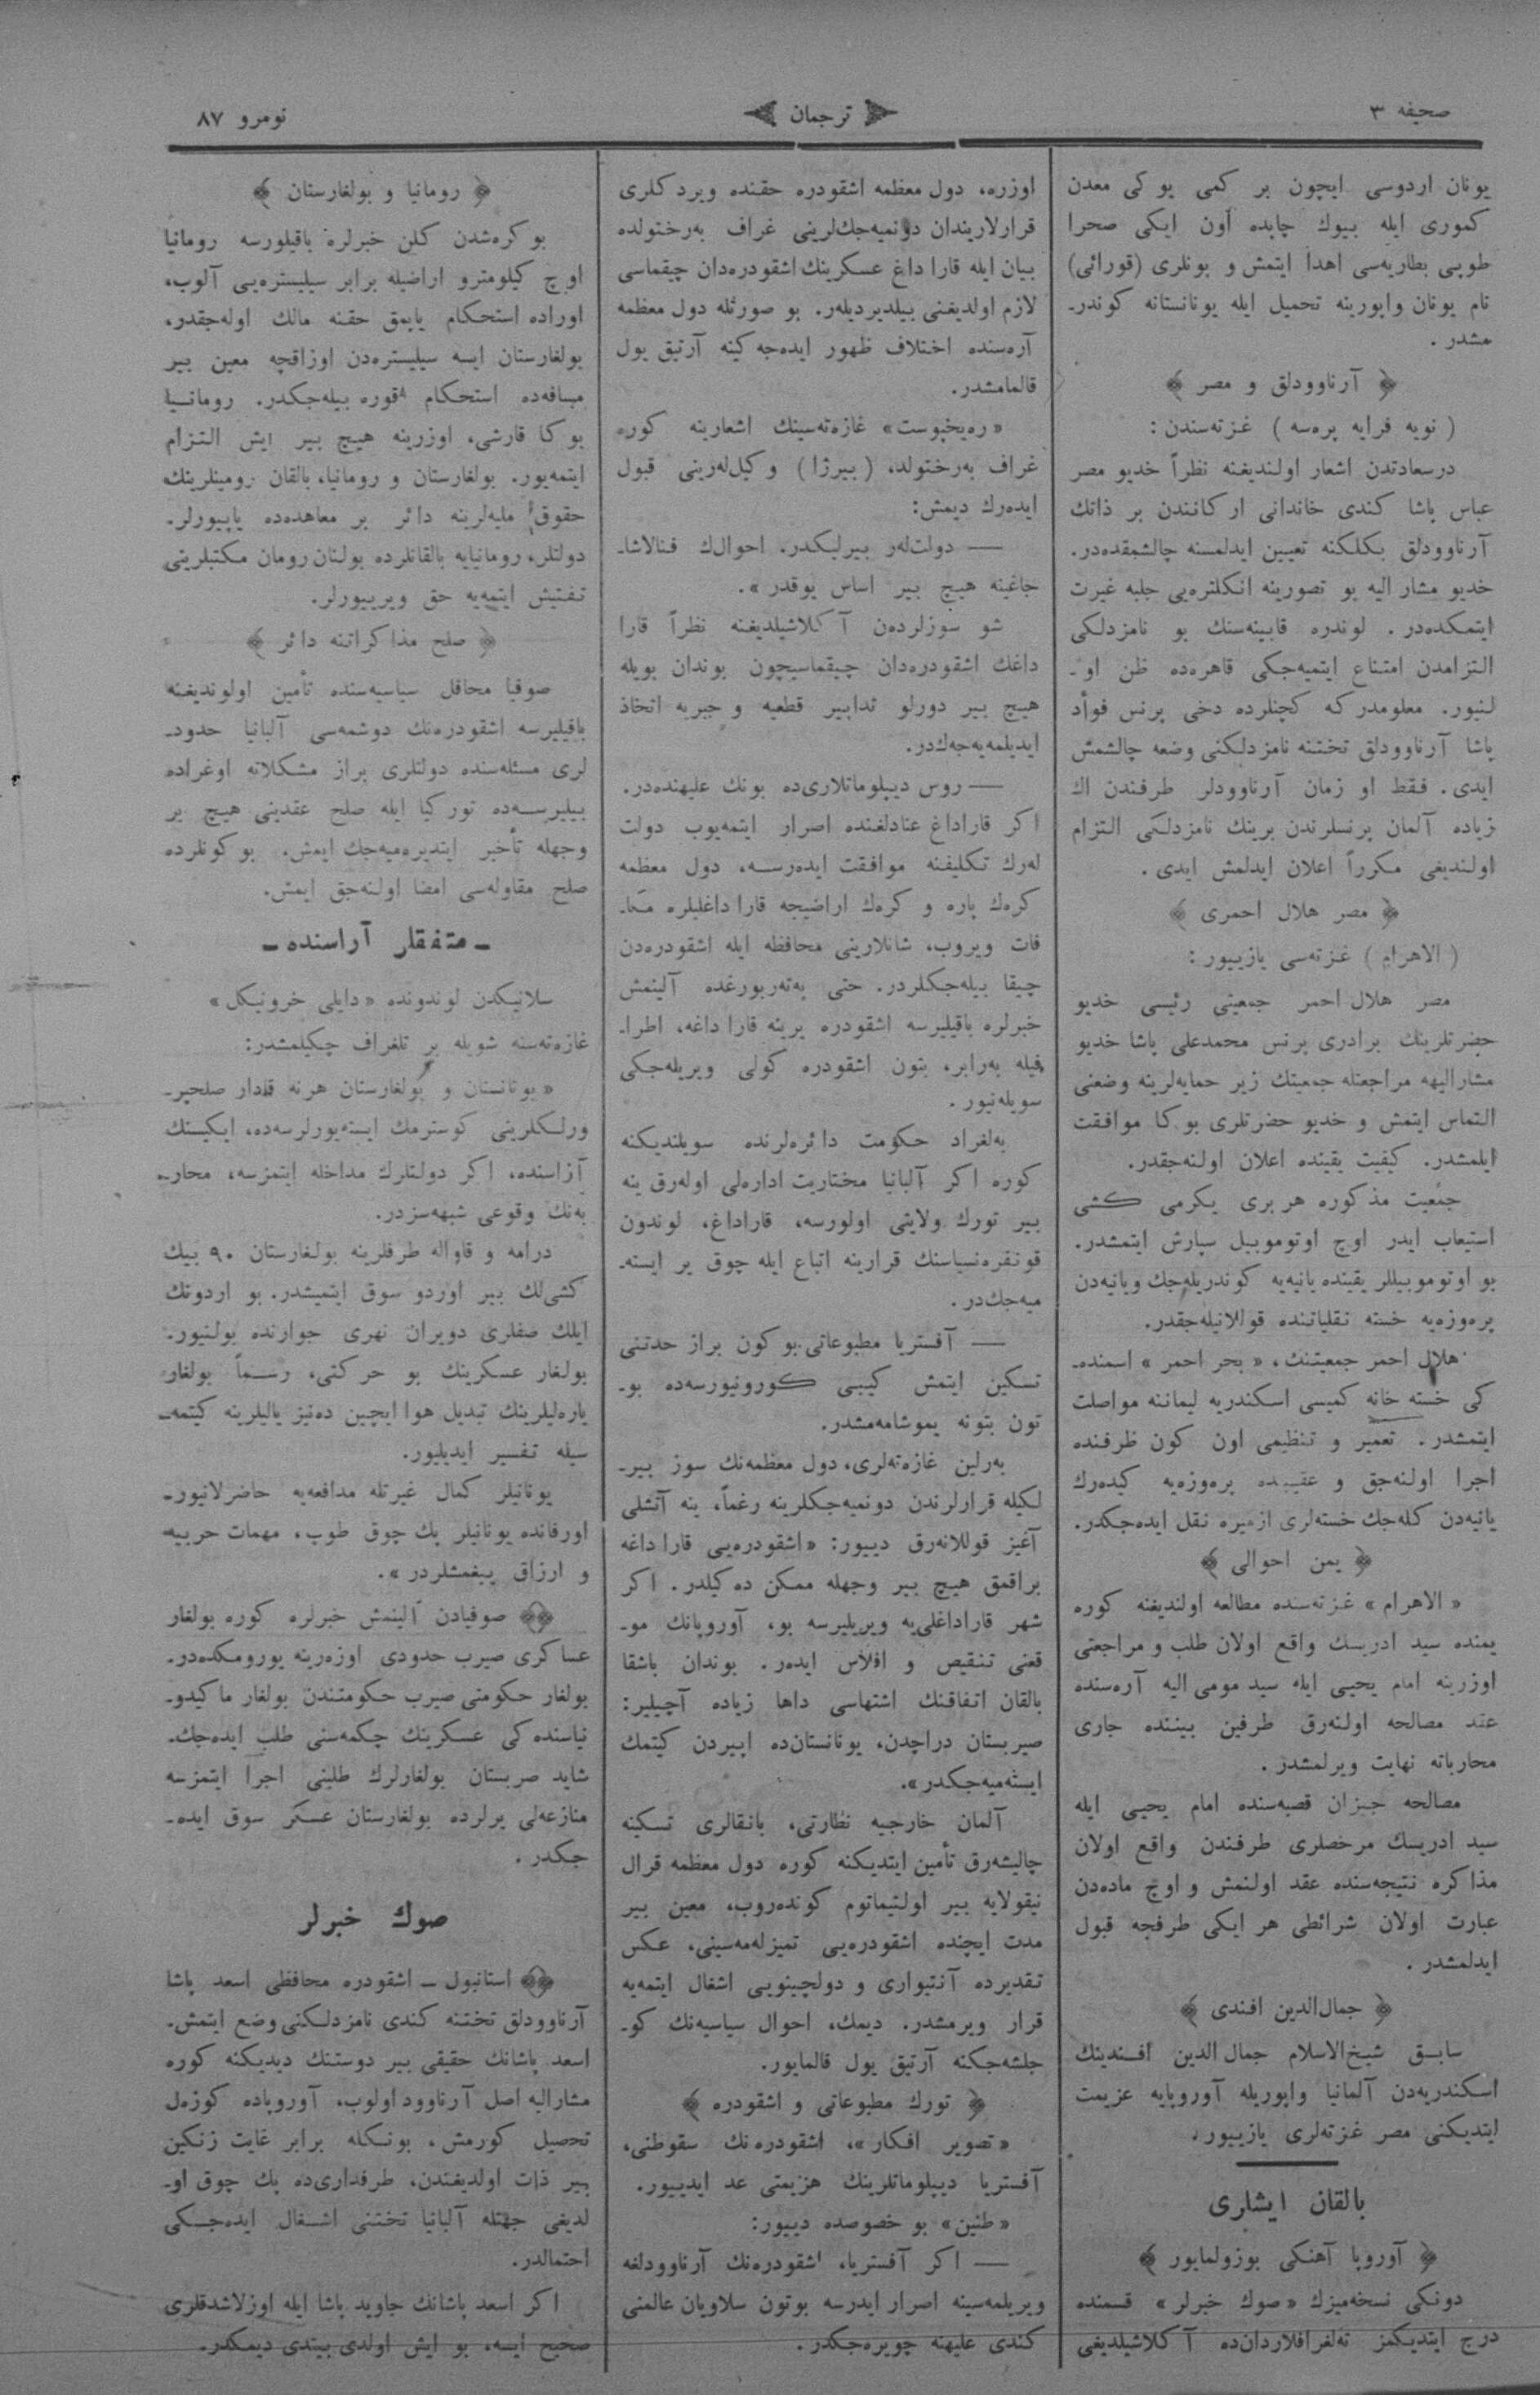 صحيفه ٣
ترجمان
نومرو ٨٧
يونان اردوسی ايچون بر كمی يوكی معدن
كموری ايله بيوك چاپده اون ايكی صحرا
طوپی بطاريه‌سی اهدا ايتمش و بونلری (قورائی)
نام يونان واپورينه تحميل ايله يونانستانه كوندر-
مشدر .
﴿ آرناوودلق و مصر ﴾
( نويه فرايه پره‌سه ) غزته‌سندن :
درسعادتدن اشعار اولنديغنه نظراً خديو مصر
عباس پاشا كندی خاندانی اركانندن بر ذاتك
آرناوودلق بكلكنه تعيين ايدلمسنه چالشمقده‌در.
خديو مشار اليه بو تصورينه انكلتره‌يی جلبه غيرت
ايتمكده‌در . لوندره قابينه‌سنك بو نامزدلكی
التزامدن امتناع ايتميه‌جكی قاهره‌ده ظن او -
لنيور. معلومدركه كچنلرده دخی پرنس فوأد
پاشا آرناوودلق تختنه نامزدلكنی وضعه چالشمش
ايدی. فقط او زمان آرناوودلر طرفندن اك
زياده آلمان پرنسلرندن برينك نامزدلكی التزام
اولنديغی مكرراً اعلان ايدلمش ايدی .
﴿ مصر هلال احمری ﴾
( الاهرام ) غزته‌سی يازييور :
مصر هلال احمر جمعيتی رئيسی خديو
حضرتلرينك برادری پرنس محمدعلی پاشا خديو
مشاراليهه مراجعتله جمعيتك زير حمايه‌لرينه وضعنی
التماس ايتمش و خديو حضرتلری بوكا موافقت
ايلمشدر. كيفيت يقينده اعلان اولنه‌جقدر.
جمعيت مذكوره هر بری يكرمی كشی
استيعاب ايدر اوچ اوتوموبيل سپارش ايتمشدر.
بو اوتوموبيللر يقينده يانيه‌يه كوندريله‌جك ويانيه‌دن
پره‌وزه‌يه خسته نقلياتنده قوللانيله‌جقدر.
هلال احمر جمعيتنك، « بحر احمر » اسمنده-
كی خسته خانه كميسی اسكندريه ليماننه مواصلت
ايتمشدر. تعمير و تنظيمی اون كون ظرفنده
اجرا اولنه‌جق و عقيبده پره‌وزه‌يه كيده‌رك
يانيه‌دن كله‌جك خسته‌لری ازميره نقل ايده‌جكدر.
﴿ يمن احوالی ﴾
« الاهرام » غزته‌سنده مطالعه اولنديغنه كوره
يمنده سيد ادريسك واقع اولان طلب و مراجعتی
اوزرينه امام يحيی ايله سيد مومی اليه آره‌سنده
عقد مصالحه اولنه‌رق طرفين بيننده جاری
محارباته نهايت ويرلمشدر.
مصالحه جيزان قصبه‌سنده امام يحيی ايله
سيد ادريسك مرخصلری طرفندن واقع اولان
مذاكره نتيجه‌سنده عقد اولنمش و اوچ ماده‌دن
عبارت اولان شرائطی هر ايكی طرفجه قبول
ايدلمشدر .
﴿ جمال‌الدين افندی ﴾
سابق شيخ‌الاسلام جمال الدين افندينك
اسكندريه‌دن آلمانيا واپوريله آوروپايه عزيمت
ايتديكنی مصر غزته‌لری يازييور.
بالقان ايشلری
﴿ آوروپا آهنكی بوزولمايور ﴾
دونكی نسخه‌ميزك « صوك خبرلر » قسمنده
درج ايتديكمز ته‌لغرافلاردان‌ده آكلاشيلديغی
اوزره، دول معظمه اشقودره حقنده ويردكلری
قرارلاريندان دونميه‌جك‌لرينی غراف به‌رختولده
بيان ايله قاراداغ عسكرينك اشقودره‌دان چيقماسی
لازم اولديغنی بيلديرديلر. بو صورتله دول معظمه
آره‌سنده اختلاف ظهور ايده‌جه‌كينه آرتيق يول
قالمامشدر.
« ره‌يخپوست » غازه‌ته‌سينك اشعارينه كوره
غراف به‌رختولد، (بيرژا) وكيل‌له‌رينی قبول
ايده‌رك ديمش:
— دولت‌لر بيرليكدر. احوالك فنالاشا-
جاغينه هيچ بير اساس يوقدر ».
شو سوزلردن آكلاشيلديغنه نظراً قارا
داغك اشقودره‌دان چيقماسيچون بوندان بويله
هيچ بير دورلو تدابير قطعيه و جبريه اتخاذ
ايديلميه‌جك‌در.
— روس ديپلوماتلاری‌ده بونك عليهنده‌در.
اكر قاراداغ عنادلغنده اصرار ايتمه‌يوب دولت
له‌رك تكليفنه موافقت ايده‌رسه، دول معظمه
كره‌ك پاره و كره‌ك اراضيجه قاراداغليلره مكا-
فات ويروب، شانلارينی محافظه ايله اشقودره‌دن
چيقا بيله‌جكلردر. حتی په‌ته‌ربورغده آلينمش
خبرلره باقيليرسه اشقودره يرينه قاراداغه، اطرا-
فيله به‌رابر، بتون اشقودره كولی ويريله‌جكی
سويله‌نيور .
به‌لغراد حكومت دائره‌لرنده سويلنديكنه
كوره اكر آلبانيا مختاريت اداره‌لی اوله‌رق ينه
بير تورك ولايتی اولورسه، قاراداغ، لوندون
قونفره‌نسياسنك قرارينه اتباع ايله چوق ير ايسته-
ميه‌جك‌در .
— آفستريا مطبوعاتی بوكون براز حدتنی
تسكين ايتمش كيبی كورونيورسه‌ده بو-
تون بتونه يموشامه‌مشدر.
به‌رلين غازه‌ته‌لری، دول معظمه‌نك سوز بير-
لكيله قرارلرندن دونميه‌جكلرينه رغماً، ينه آتشلی
آغيز قوللانه‌رق دييور: « اشقودره‌يی قاراداغه
براقمق هيچ بير وجهله ممكن ده‌كيلدر. اكر
شهر قاراداغلی‌يه ويريليرسه بو، آوروپانك مو-
قعنی تنقيص و افلاس ايده‌ر. بوندان باشقا
بالقان اتفاقنك اشتهاسی داها زياده آچيلير:
صيربستان دراچدن، يونانستان‌ده اپيردن كيتمك
ايسته‌ميه‌جكدر ».
آلمان خارجيه نظارتی، بانقالری تسكينه
چاليشه‌رق تأمين ايتديكنه كوره دول معظمه قرال
نيقولايه بير اولتيماتوم كونده‌روب، معين بير
مدت ايچنده اشقودره‌يی تميزله‌مه‌سينی، عكس
تقديرده آنتيواری و دولچينويی اشغال ايتمه‌يه
قرار ويرمشدر. ديمك، احوال سياسيه‌نك كو-
جلشه‌جكنه آرتيق يول قالمايور.
﴿ تورك مطبوعاتی و اشقودره ﴾
« تصوير افكار »، اشقودره‌نك سقوطنی،
آفستريا ديپلوماتلرينك هزيمتی عد ايدييور.
« طنين » بو خصوصده دييور:
— اكر آفستريا، اشقودره‌نك آرناوودلغه
ويريلمه‌سينه اصرار ايدرسه بوتون سلاويان عالمنی
كندی عليهنه چويره‌جكدر .
﴿ رومانيا و بولغارستان ﴾
بوكره‌شدن كلن خبرلره باقيلورسه رومانيا
اوچ كيلومترو اراضيله برابر سيليستره‌يی آلوب،
اوراده استحكام ياپمق حقنه مالك اوله‌جقدر،
بولغارستان ايسه سيليستره‌دن اوزاقچه معين بير
مسافه‌ده استحكام قوره بيله‌جكدر. رومانيا
بوكا قارشی، اوزرينه هيچ بير ايش التزام
ايتمه‌يور. بولغارستان و رومانيا، بالقان رومينلرينك
حقوق مليه‌لرينه دائر بر معاهده‌ده ياپييورلر.
دولتلر، رومانيايه بالقانلرده بولنان رومان مكتبلرينی
تفتيش ايتمه‌يه حق ويرييورلر.
﴿ صلح مذاكراتنه دائر ﴾
صوفيا محافل سياسيه‌سنده تأمين اولونديغنه
باقيليرسه اشقودره‌نك دوشمه‌سی آلبانيا حدود-
لری مسئله‌سنده دولتلری براز مشكلاته اوغراده
بيليرسه‌ده توركيا ايله صلح عقدينی هيچ بر
وجهله تأخير ايتديره‌ميه‌جك ايمش. بو كونلرده
صلح مقاوله‌سی امضا اولنه‌جق ايمش.
ـ متفقلر آراسنده ـ
سلانيكدن لوندونده « دايلی خرونيكل »
غازه‌ته‌سنه شويله بر تلغراف چكيلمشدر:
« يونانستان و بولغارستان هر نه قدار صلحپر-
ورلكلرينی كوسترمك ايسته‌يورلرسه‌ده، ايكيسنك
آراسنده، اكر دولتلرك مداخله ايتمزسه، محار-
به‌نك وقوعی شبهه‌سزدر.
درامه و قاواله طرفلرينه بولغارستان ٩٠ بيك
كشی‌لك بير اوردو سوق ايتميشدر. بو اردونك
ايلك صفلری دويران نهری جوارنده بولنيور.
بولغار عسكرينك بو حركتی، رسماً بولغار
ياره‌ليلرينك تبديل هوا ايچين ده‌نيز ياليلرينه كيتمه-
سيله تفسير ايديليور.
يونانيلر كمال غيرتله مدافعه‌يه حاضرلانيور-
اورفانده يونانيلر پك چوق طوپ، مهمات حربيه
و ارزاق ييغمشلردر ».
صوفيادن آلينمش خبرلره كوره بولغار
عساكری صيرب حدودی اوزه‌رينه يورومكده‌در.
بولغار حكومتی صيرب حكومتندن بولغار ماكيدو-
نياسنده‌كی عسكرينك چكمه‌سنی طلب ايده‌جك-
شايد صربستان بولغارلرك طلبنی اجرا ايتمزسه
منازعه‌لی يرلرده بولغارستان عسكر سوق ايده-
جكدر .
صوك خبرلر
استانبول ـ اشقودره محافظی اسعد پاشا
آرناوودلق تختنه كندی نامزدلكنی وضع ايتمش-
اسعد پاشانك حقيقی بير دوستنك ديديكنه كوره
مشاراليه اصل آرناوود اولوب، آوروپاده كوزه‌ل
تحصيل كورمش، بونكله برابر غايت زنكين
بير ذات اولديغندن، طرفداری‌ده پك چوق او-
لديغی جهتله آلبانيا تختنی اشغال ايده‌جكی
احتمالدر.
اكر اسعد پاشانك جاويد پاشا ايله اوزلاشدقلری
صحيح ايسه، بو ايش اولدی بيتدی ديمكدر.